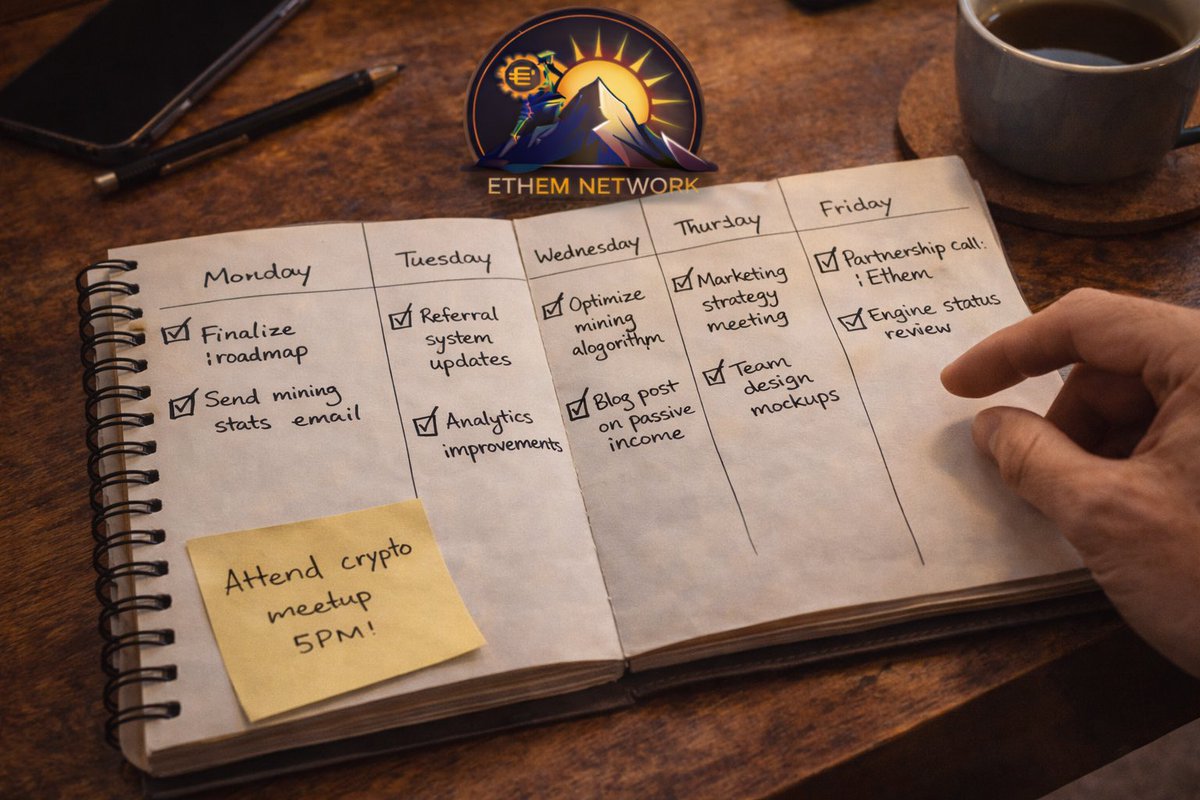 ETHEM NETWORK
Monday
Finalize
: roadmap
Send mining
stats email
Tuesday
Referral
system
updates
Analytics
improvements
Wednesday
Optimize
mining
alogorithm
Blog post
on passive
income
Thursday
Marketing
strategy
meeting
Team
design
mockups
Friday
Partnership call:
: Ethem
Engine status
review
Attend crypto
meetup
5PM!